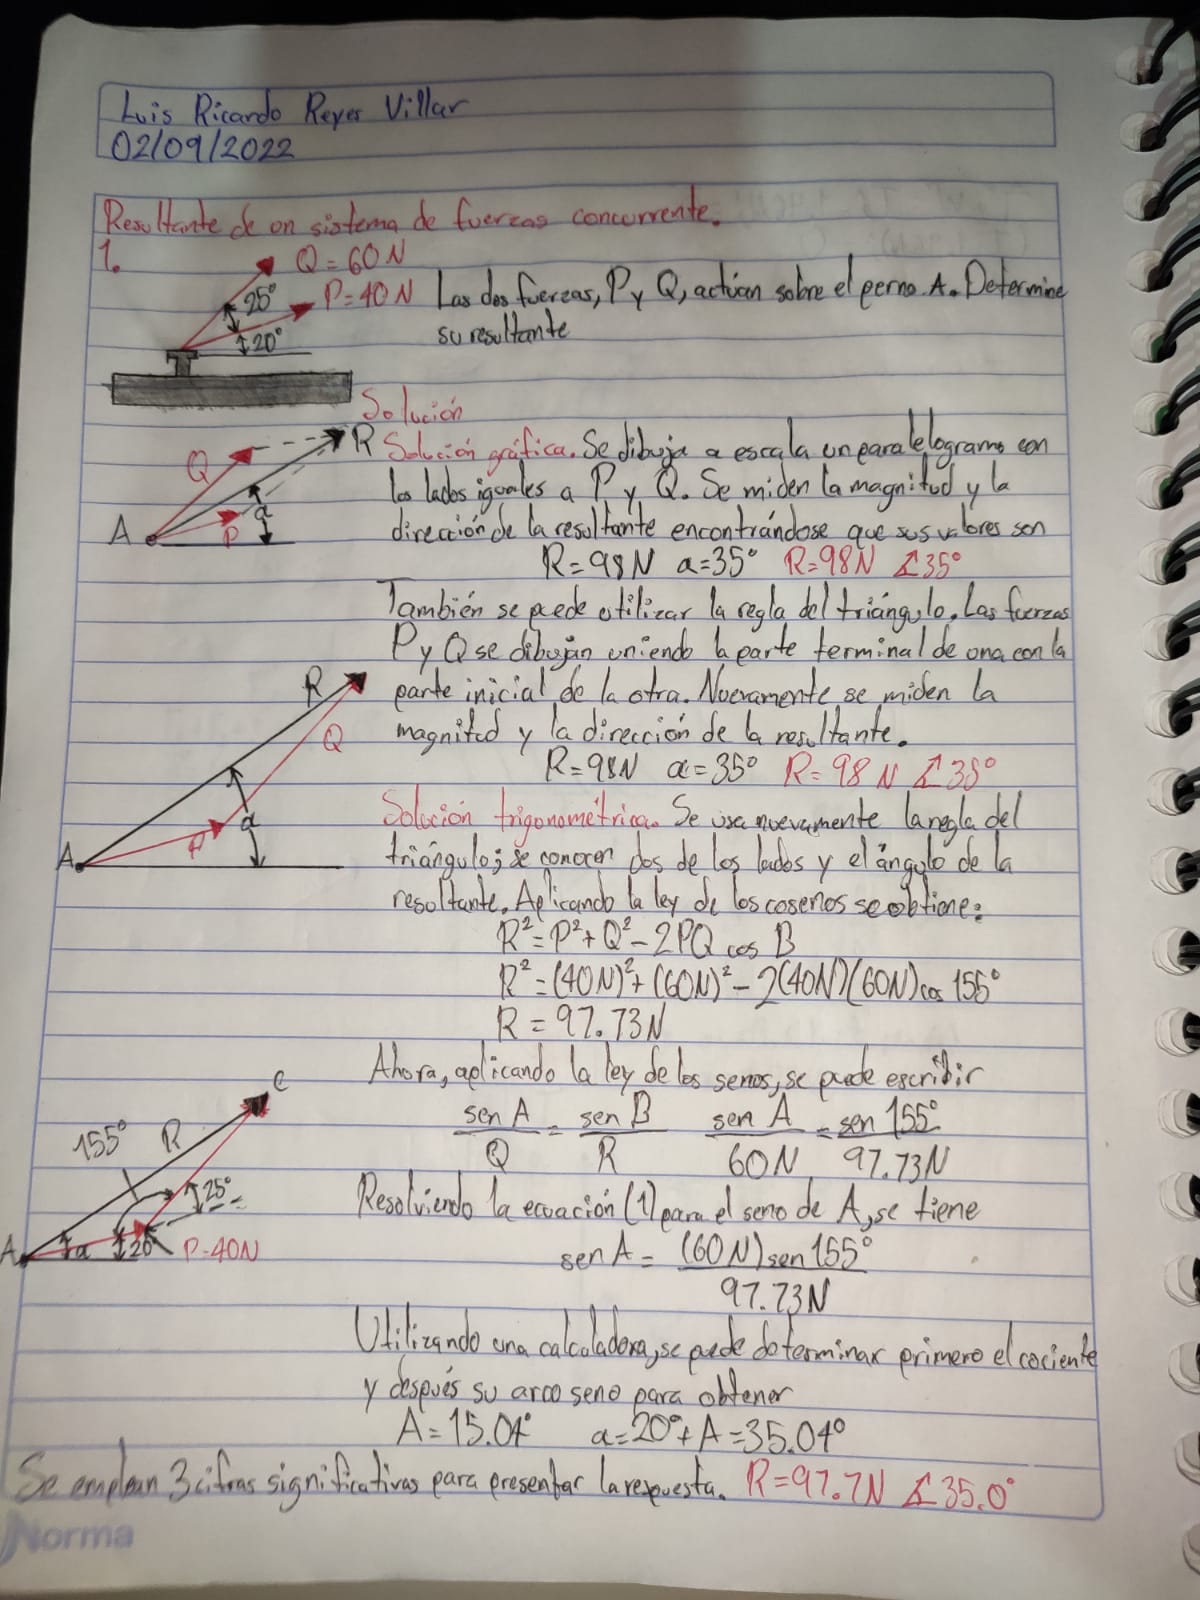 Luis Ricardo Reyes Villar
02/09/2022
Resultante de un sistema de fuerzas concurrente.
1.
Q = 60N
25°
P = 40N
20°
Las dos fuerzas, P y Q, actúan sobre el perno A. Determine
su resultante
Solución
Q
R
A
P
a
Solución gráfica. Se dibuja a escala un paralelogramo con
los lados iguales a P y Q. Se miden la magnitud y la
dirección de la resultante encontrándose que sus valores son
R = 98N a = 35° R = 98N ∡35°
También se puede utilizar la regla del triángulo. Las fuerzas
P y Q se dibujan uniendo la parte terminal de una con la
parte inicial de la otra. Nuevamente se miden la
magnitud y la dirección de la resultante.
R = 98N a = 35° R = 98 N ∡35°
R
Q
a
P
A
Solución trigonométrica. Se usa nuevamente la regla del
triángulo; se conocen dos de los lados y el ángulo de la
resultante. Aplicando la ley de los cosenos se obtiene:
R² = P² + Q² - 2PQ cos B
R² = (40N)² + (60N)² - 2(40N)(60N) cos 155°
R = 97.73N
Ahora, aplicando la ley de los senos, se puede escribir
sen A / Q = sen B / R sen A / 60N = sen 155° / 97.73N
C
155°
R
25°
A
a
20°
P-40N
Resolviendo la ecuación (1) para el seno de A, se tiene
sen A = (60N) sen 155° / 97.73N
Utilizando una calculadora, se puede determinar primero el cociente
y después su arco seno para obtener
A = 15.04° a = 20° + A = 35.04°
Se emplean 3 cifras significativas para presentar la respuesta. R = 97.7N ∡35.0°
Norma